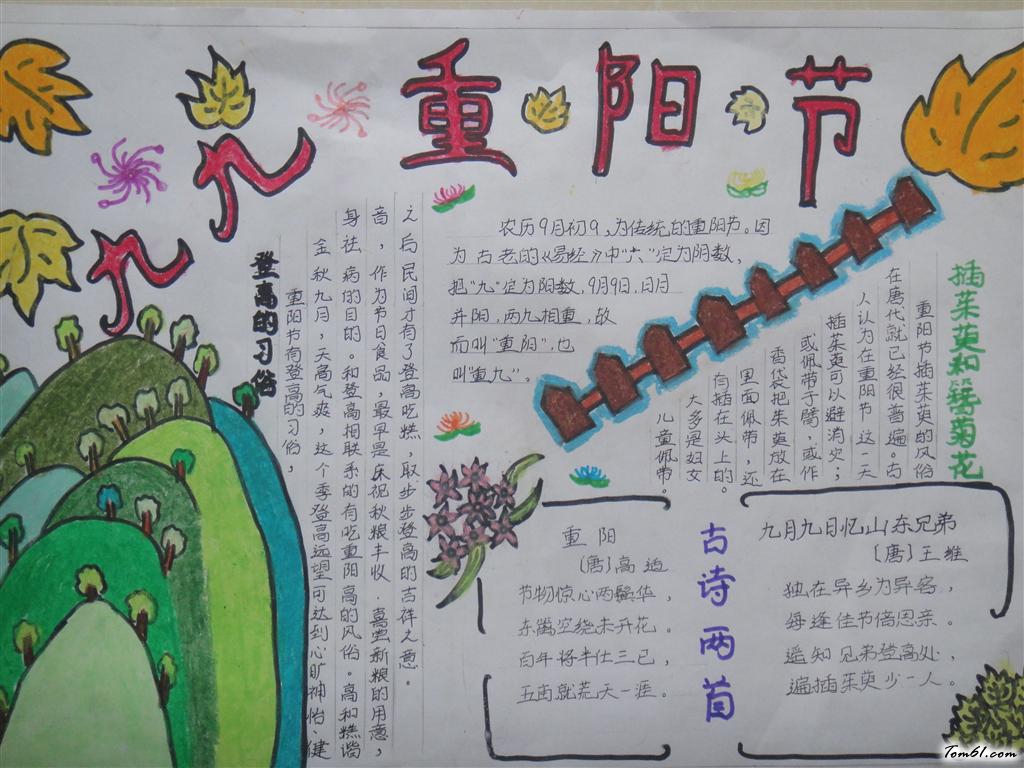 九九重阳节
农历9月初9,为传统的重阳节。因
为古老的《易经》中"六"定为阴数,
把"九"定为阳数,9月9日,日月
并阳,两九相重,故
而叫"重阳",也
叫"重九"。
登高的习俗
重阳节有登高的习俗,
金秋九月,天高气爽,这个季登高远望可达到心旷神怡、健
身祛病的目的。和登高相联系的有吃重阳高的风俗。高和糕谐
音,作为节日食品,最早是庆祝秋粮丰收、喜尝新粮的用意,
之后民间才有了登高吃糕,取步步登高的吉祥之意。
插茱萸和簪菊花
重阳节插茱萸的风俗
在唐代就已经很普遍。古
人认为在重阳节这一天
插茱萸可以避消灾;
或佩带于臂,或作
香袋把朱萸放在
里面佩带,还
有插在头上的。
大多是妇女
儿童佩带。
古诗两首
重阳
〔唐〕高适
节物惊心两鬓华,
东篱空绕未开花。
百年将半仕三已,
五亩就荒天一涯。
九月九日忆山东兄弟
〔唐〕王维
独在异乡为异客,
每逢佳节倍思亲。
遥知兄弟登高处,
遍插茱萸少一人。
Tom61.com